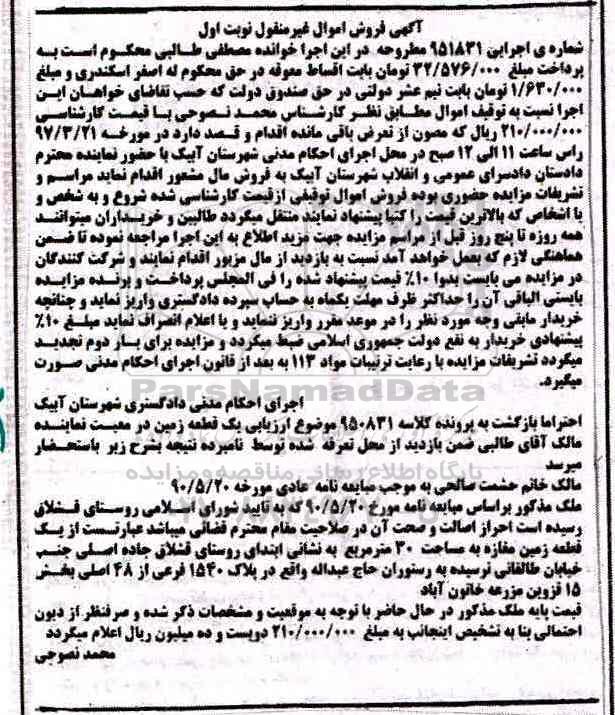 آگهی فروش اموال غیرمنقول نوبت اول
شماره ی اجرایی ۹۵۱۸۳۱ مطروحه در این اجرا خوانده مصطفی طالبی محکوم است به
پرداخت مبلغ ۳۲/۵۷۶/۰۰۰ تومان بابت اقساط معوقه در حق محکوم له اصغر اسکندری و مبلغ
۱/۶۳۰/۰۰۰ تومان بابت نیم عشر دولتی در حق صندوق دولت که حسب تقاضای خواهان این
اجرا نسبت به توقیف اموال مطابق نظر کارشناس محمد نصوحی با قیمت کارشناسی
۲۱۰/۰۰۰/۰۰۰ ریال که مصون از تعرض باقی مانده اقدام و قصد دارد در مورخه ۹۷/۳/۲۱
راس ساعت ۱۱ الی ۱۲ صبح در محل اجرای احکام مدنی شهرستان آبیک با حضور نماینده محترم
دادستان دادسرای عمومی و انقلاب شهرستان آبیک به فروش مال مشعور اقدام نماید مراسم و
تشریفات مزایده حضوری بوده فروش اموال توقیفی ازقیمت کارشناسی شده شروع و به شخص و
یا اشخاص که بالاترین قیمت را کتبا پیشنهاد نمایند منتقل میگردد طالبین و خریداران میتوانند
همه روزه تا پنج روز قبل از مراسم مزایده جهت مزید اطلاع به این اجرا مراجعه نموده تا ضمن
هماهنگی لازم که بعمل خواهد آمد نسبت به بازدید از مال مزبور اقدام نمایند و شرکت کنندگان
در مزایده می بایست بدوا ۱۰٪ قیمت پیشنهاد شده را فی المجلس پرداخت و برنده مزایده
بایستی الباقی آن را حداکثر ظرف مهلت یکماه به حساب سپرده دادگستری واریز نماید و چنانچه
خریدار مابقی وجه مورد نظر را در موعد مقرر واریز ننماید و یا اعلام انصراف نماید مبلغ ۱۰٪
پیشنهادی خریدار به نفع دولت جمهوری اسلامی ضبط میگردد و مزایده برای بار دوم تجدید
میگردد تشریفات مزایده با رعایت ترتیبات مواد ۱۱۳ به بعد از قانون اجرای احکام مدنی صورت
میگیرد.
ParsNamadData
اجرای احکام مدنی دادگستری شهرستان آبیک
احتراما بازگشت به پرونده کلاسه ۹۵۰۸۳۱ موضوع ارزیابی یک قطعه زمین در معیت نماینده
مالک آقای طالبی ضمن بازدید از محل تعرفه شده توسط نامبرده نتیجه بشرح زیر باستحضار
میرسد
پایگاه اطلاع رسانی مناقصه و مزایده
مالک خانم حشمت صالحی به موجب مبایعه نامه عادی مورخه ۹۰/۵/۲۰
ملک مذکور براساس مبایعه نامه مورخ ۹۰/۵/۲۰ که به تایید شورای اسلامی روستای قشلاق
رسیده است احراز اصالت و صحت آن در صلاحیت مقام محترم قضائی میباشد عبارتست از یک
قطعه زمین مغازه به مساحت ۳۰ مترمربع به نشانی ابتدای روستای قشلاق جاده اصلی جنب
خیابان طالقانی نرسیده به رستوران حاج عبداله واقع در پلاک ۱۵۴۰ فرعی از ۴۸ اصلی بخش
۱۵ قزوین مزرعه خاتون آباد
قیمت پایه ملک مذکور در حال حاضر با توجه به موقعیت و مشخصات ذکر شده و صرفنظر از دیون
احتمالی بنا به تشخیص اینجانب به مبلغ ۲۱۰/۰۰۰/۰۰۰ دویست و ده میلیون ریال اعلام میگردد
محمد نصوحی